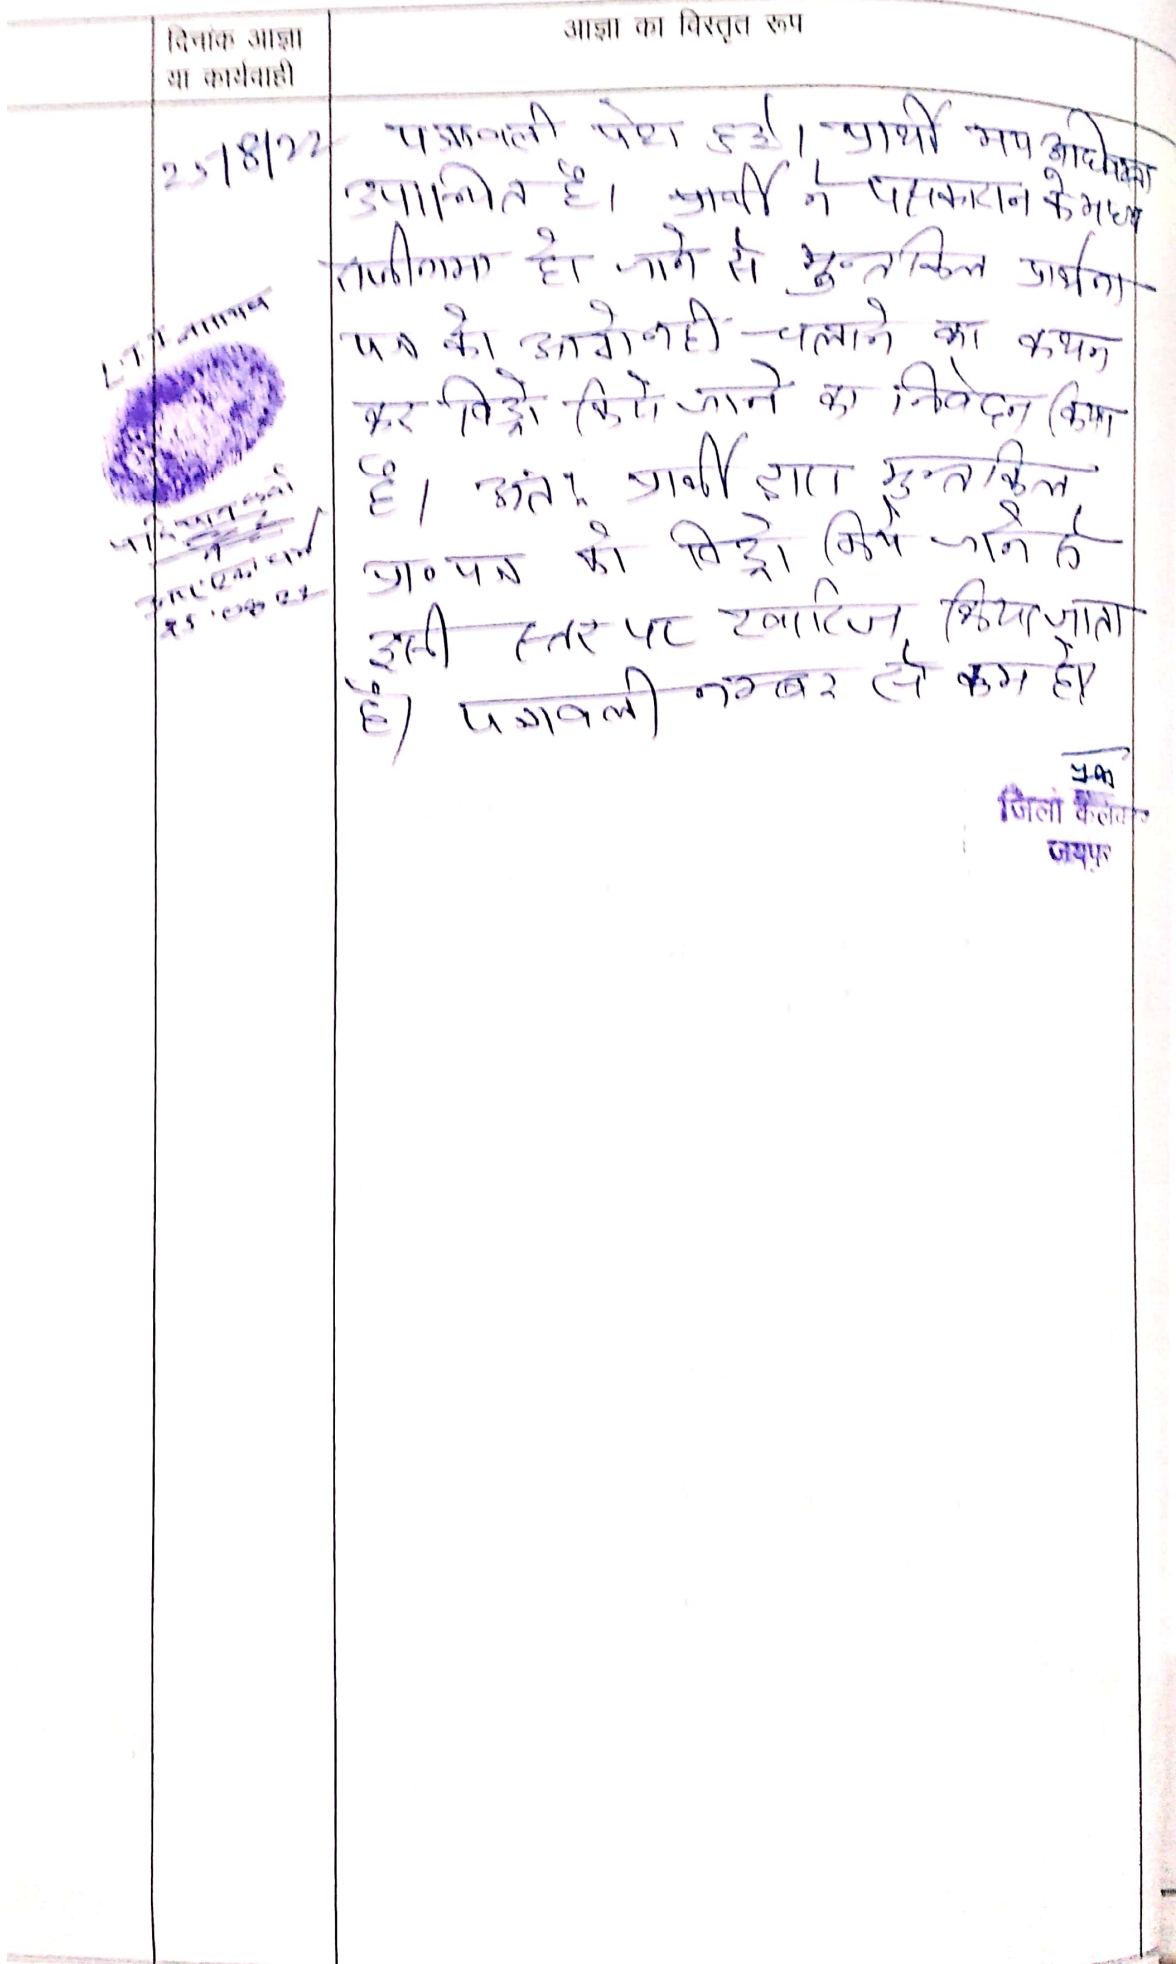 दिनांक आज्ञा
या कार्यवाही
आज्ञा का विस्तृत रूप
25/8/22
पत्रावली पेश हुई। प्रार्थी मय अधिवक्ता
उपस्थित है। प्रार्थी ने पक्षकारान के मध्य
राजीनामा हो जाने से मुन्तकिल प्रार्थना
पत्र को आगे नही चलाने का कथन
कर विड्रो किये जाने का निवेदन किया
है। अतः प्रार्थी द्वारा मुन्तकिल
प्रा०पत्र को विड्रो किये जाने से
इसी स्तर पर खारिज किया जाता
है। पत्रावली नम्बर से कम हो।
जिला कलक्टर
जयपुर